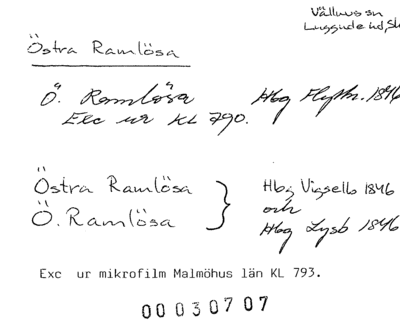 Välluvs sn
Luggude hd, Sk
Östra Ramlösa
Ö. Ramlösa Hbg Flyttn. 1846
Exc ur KL 790.
Östra Ramlösa Hbg Vigselb 1846
och
Ö. Ramlösa Hbg Lysb 1846
Exc ur mikrofilm Malmöhus län KL 793.
00030707